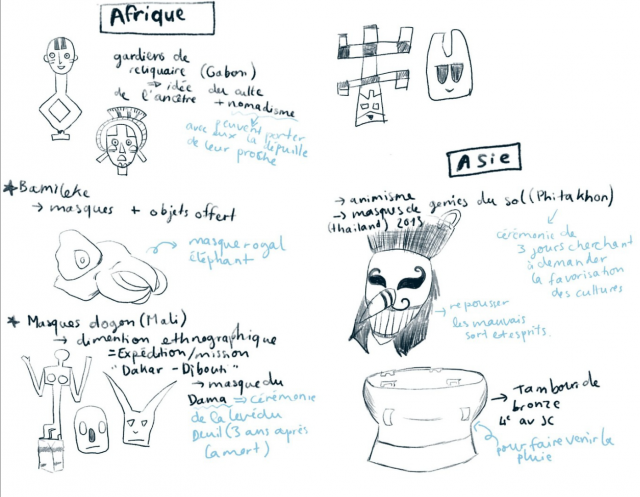 Afrique
gardiens de
reliquaire (Gabon)
→ idée du culte
de l'ancêtre + nomadisme
peuvent porter
avec eux la dépouille
de leur proche
* Bamileke
→ masques + objets offert
→ masque royal
éléphant
* Masques dogon (Mali)
→ dimention ethnographique
= Expédition/mission
"Dakar - Djibouti"
→ masque du
Dama ⇒ cérémonie
de la levée du
Deuil (3 ans après
la mort)
Asie
→ animisme
→ masques de genies du sol (Phitakhon)
(thailand) 2015
cérémonie de
3 jours cherchant
à demander
la favorisation
des cultures
→ repousser
les mauvais
sort et esprits.
→ Tambour de
bronze
4e av JC
pour faire venir la
pluie